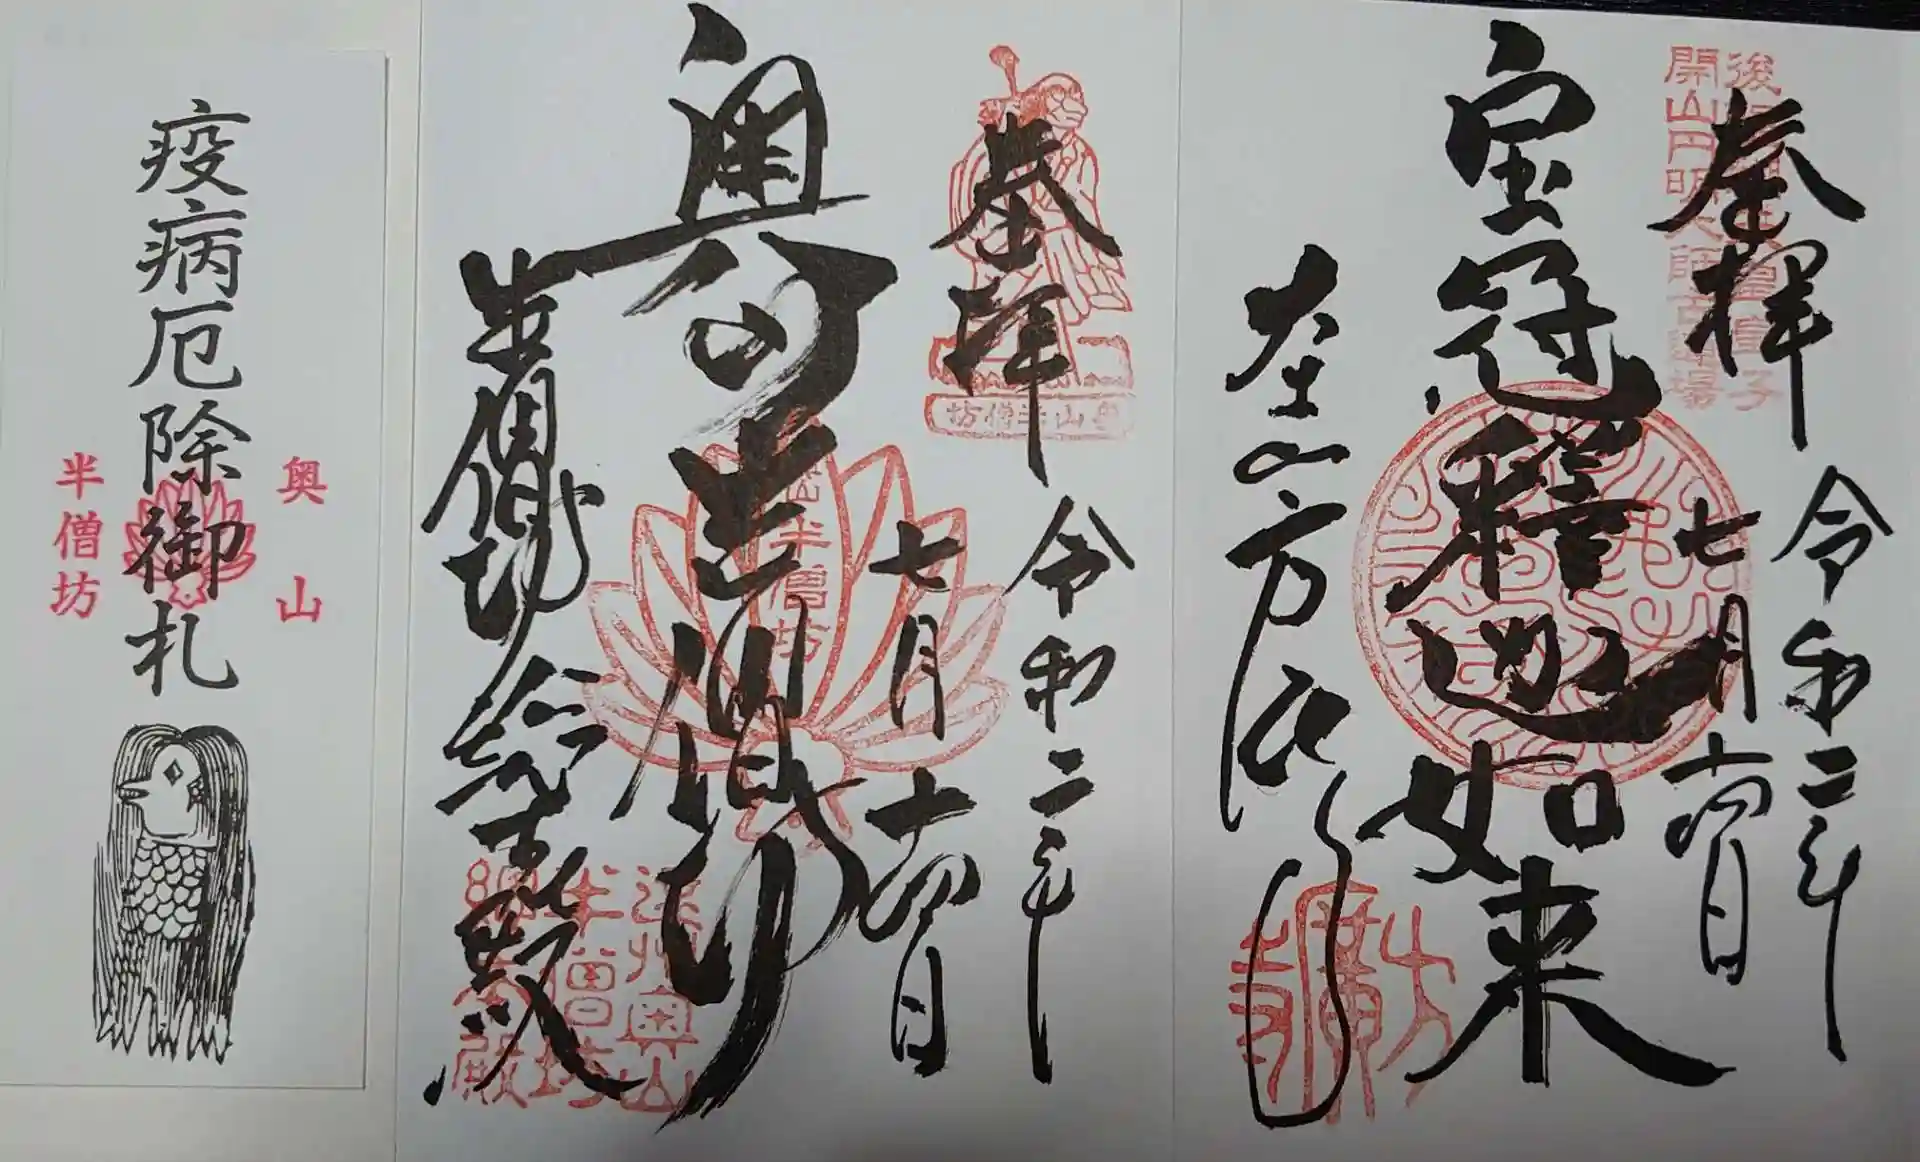 奉拝
令和二年
七月十四日
宝冠釋迦如来
大本山方広寺
奉拝
令和二年
七月十四日
奥山半僧坊
半僧坊総本殿
奥山半僧坊
疫病厄除御札
奥山
半僧坊